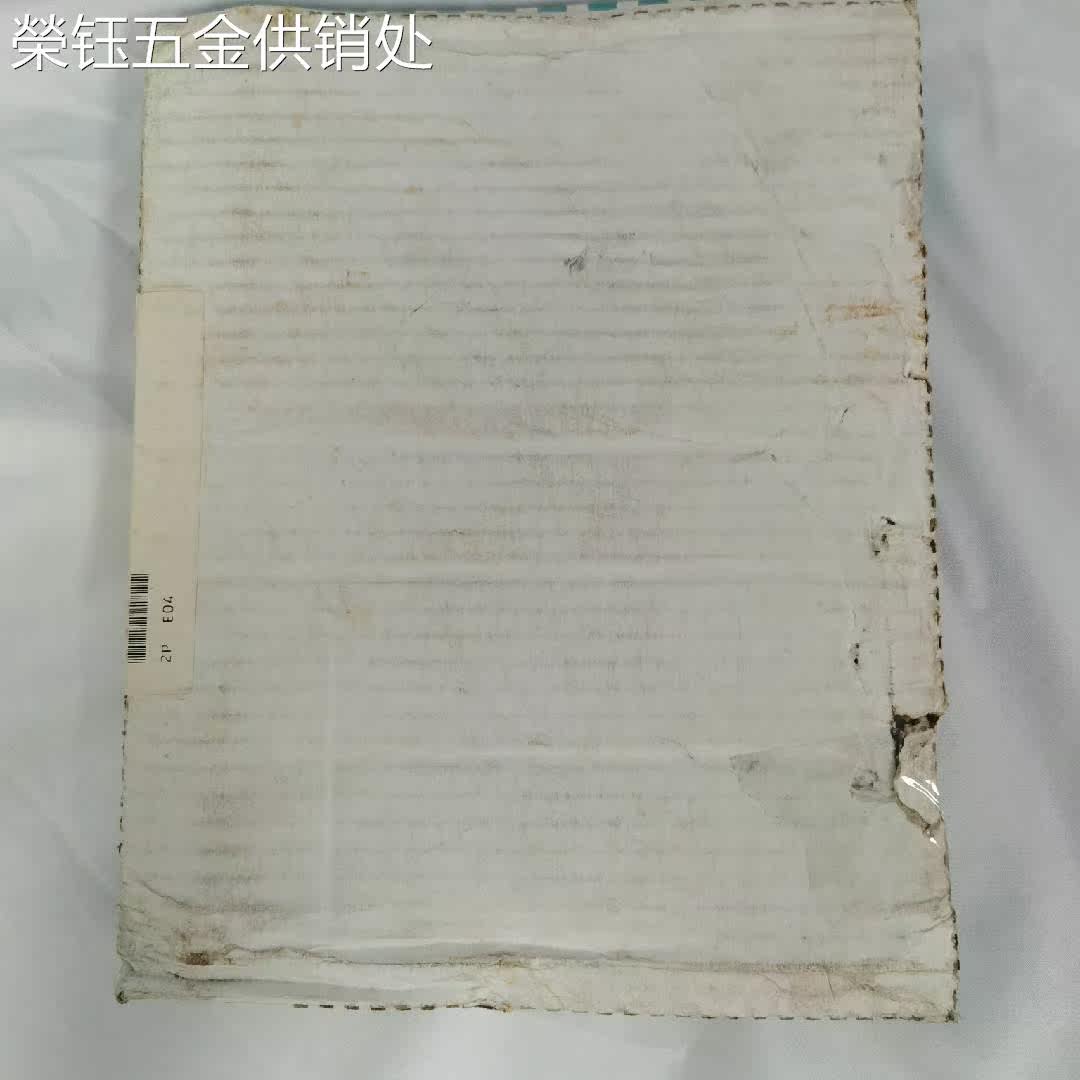 榮钰五金供销处
2P E04